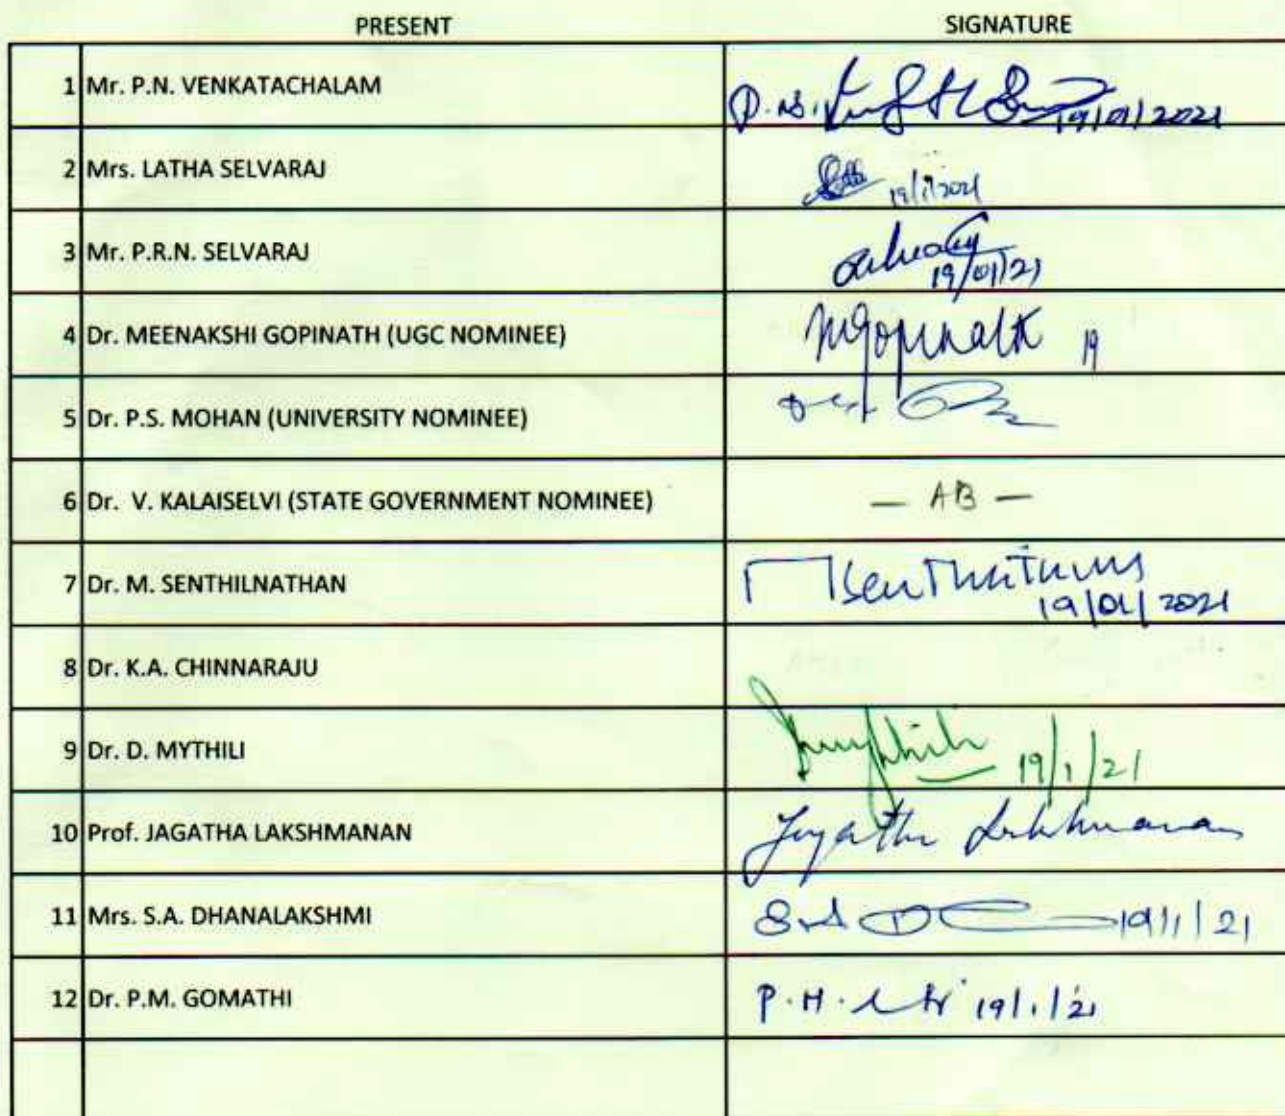 PRESENT SIGNATURE
1 Mr. P.N. VENKATACHALAM P.N. 19/01/2021
2 Mrs. LATHA SELVARAJ 19/1/2021
3 Mr. P.R.N. SELVARAJ 19/01/21
4 Dr. MEENAKSHI GOPINATH (UGC NOMINEE) MGopinath 19
5 Dr. P.S. MOHAN (UNIVERSITY NOMINEE)
6 Dr. V. KALAISELVI (STATE GOVERNMENT NOMINEE) — AB —
7 Dr. M. SENTHILNATHAN 19/01/2021
8 Dr. K.A. CHINNARAJU
9 Dr. D. MYTHILI 19/1/21
10 Prof. JAGATHA LAKSHMANAN Jagatha Lakshmanan
11 Mrs. S.A. DHANALAKSHMI 19/1/21
12 Dr. P.M. GOMATHI P.M. 19/1/21